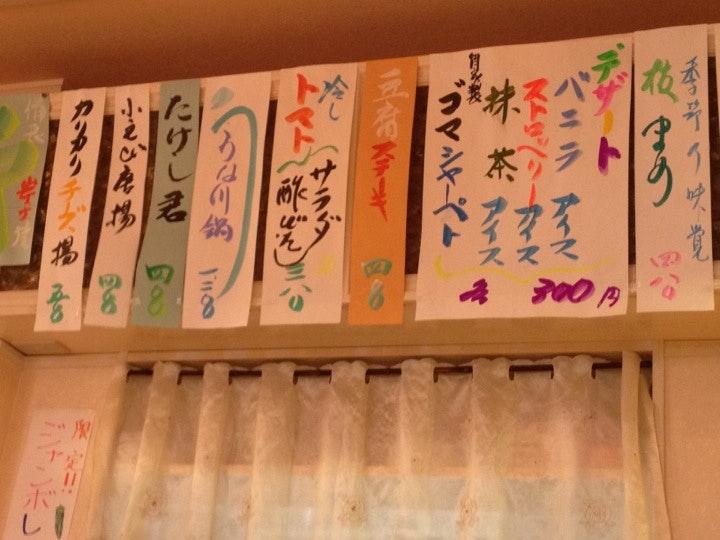 季節の味覚
枝まめ
四八〇
デザート
バニラアイス
ストロベリーアイス
抹茶アイス
自家製
ゴマシャーベト
各300円
豆腐ステーキ
四〇〇
冷し
トマトサラダ
三八〇
うな川鍋
たけし君
四〇〇
小えび唐揚
四〇〇
カリカリチーズ揚
限定!!
ジャンボし